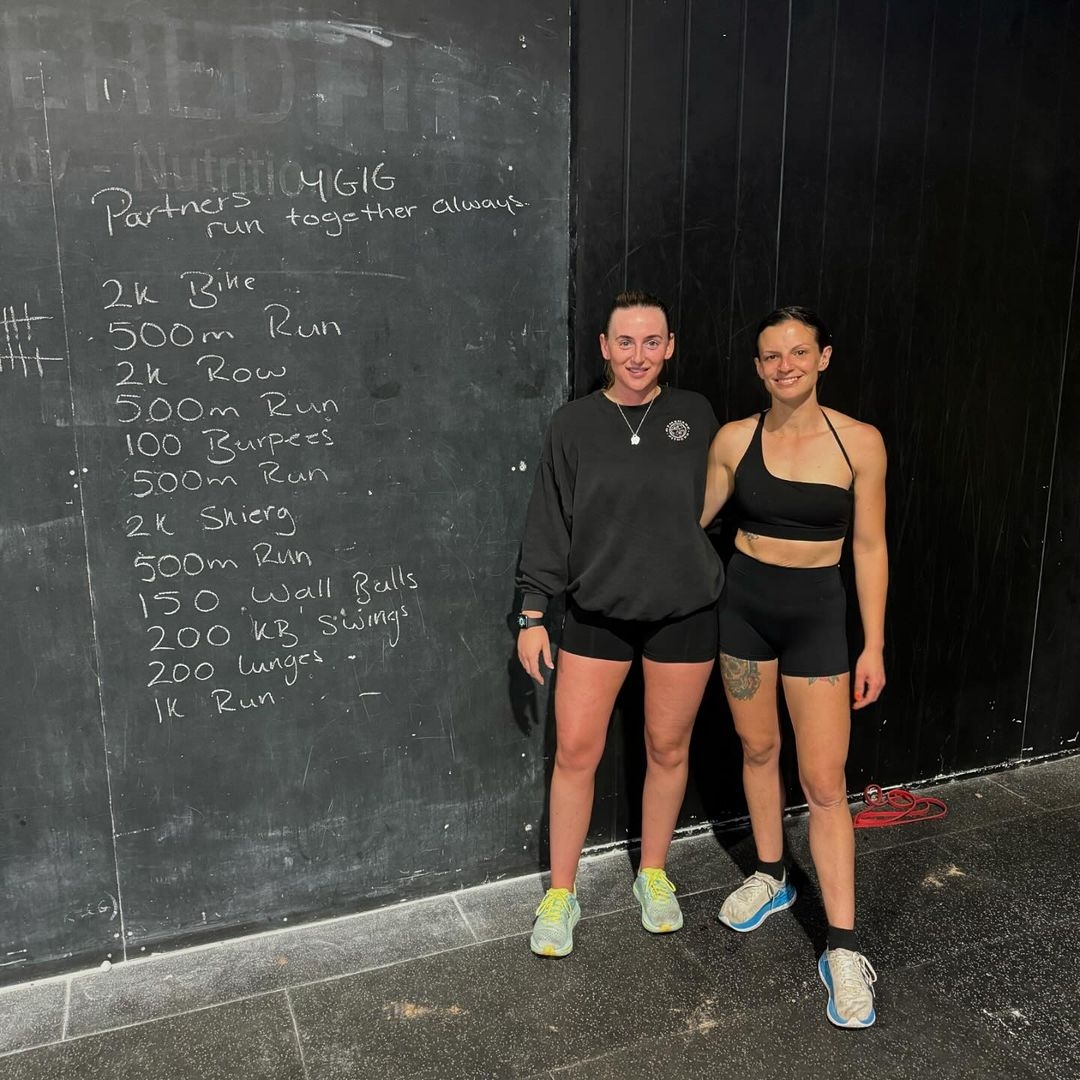 Nutrition
YGIG
Partners
run together always.
2k Bike
500m Run
2k Row
500m Run
100 Burpees
500m Run
2K Skierg
500m Run
150 Wall Balls
200 KB Swings
200 lunges
1K Run